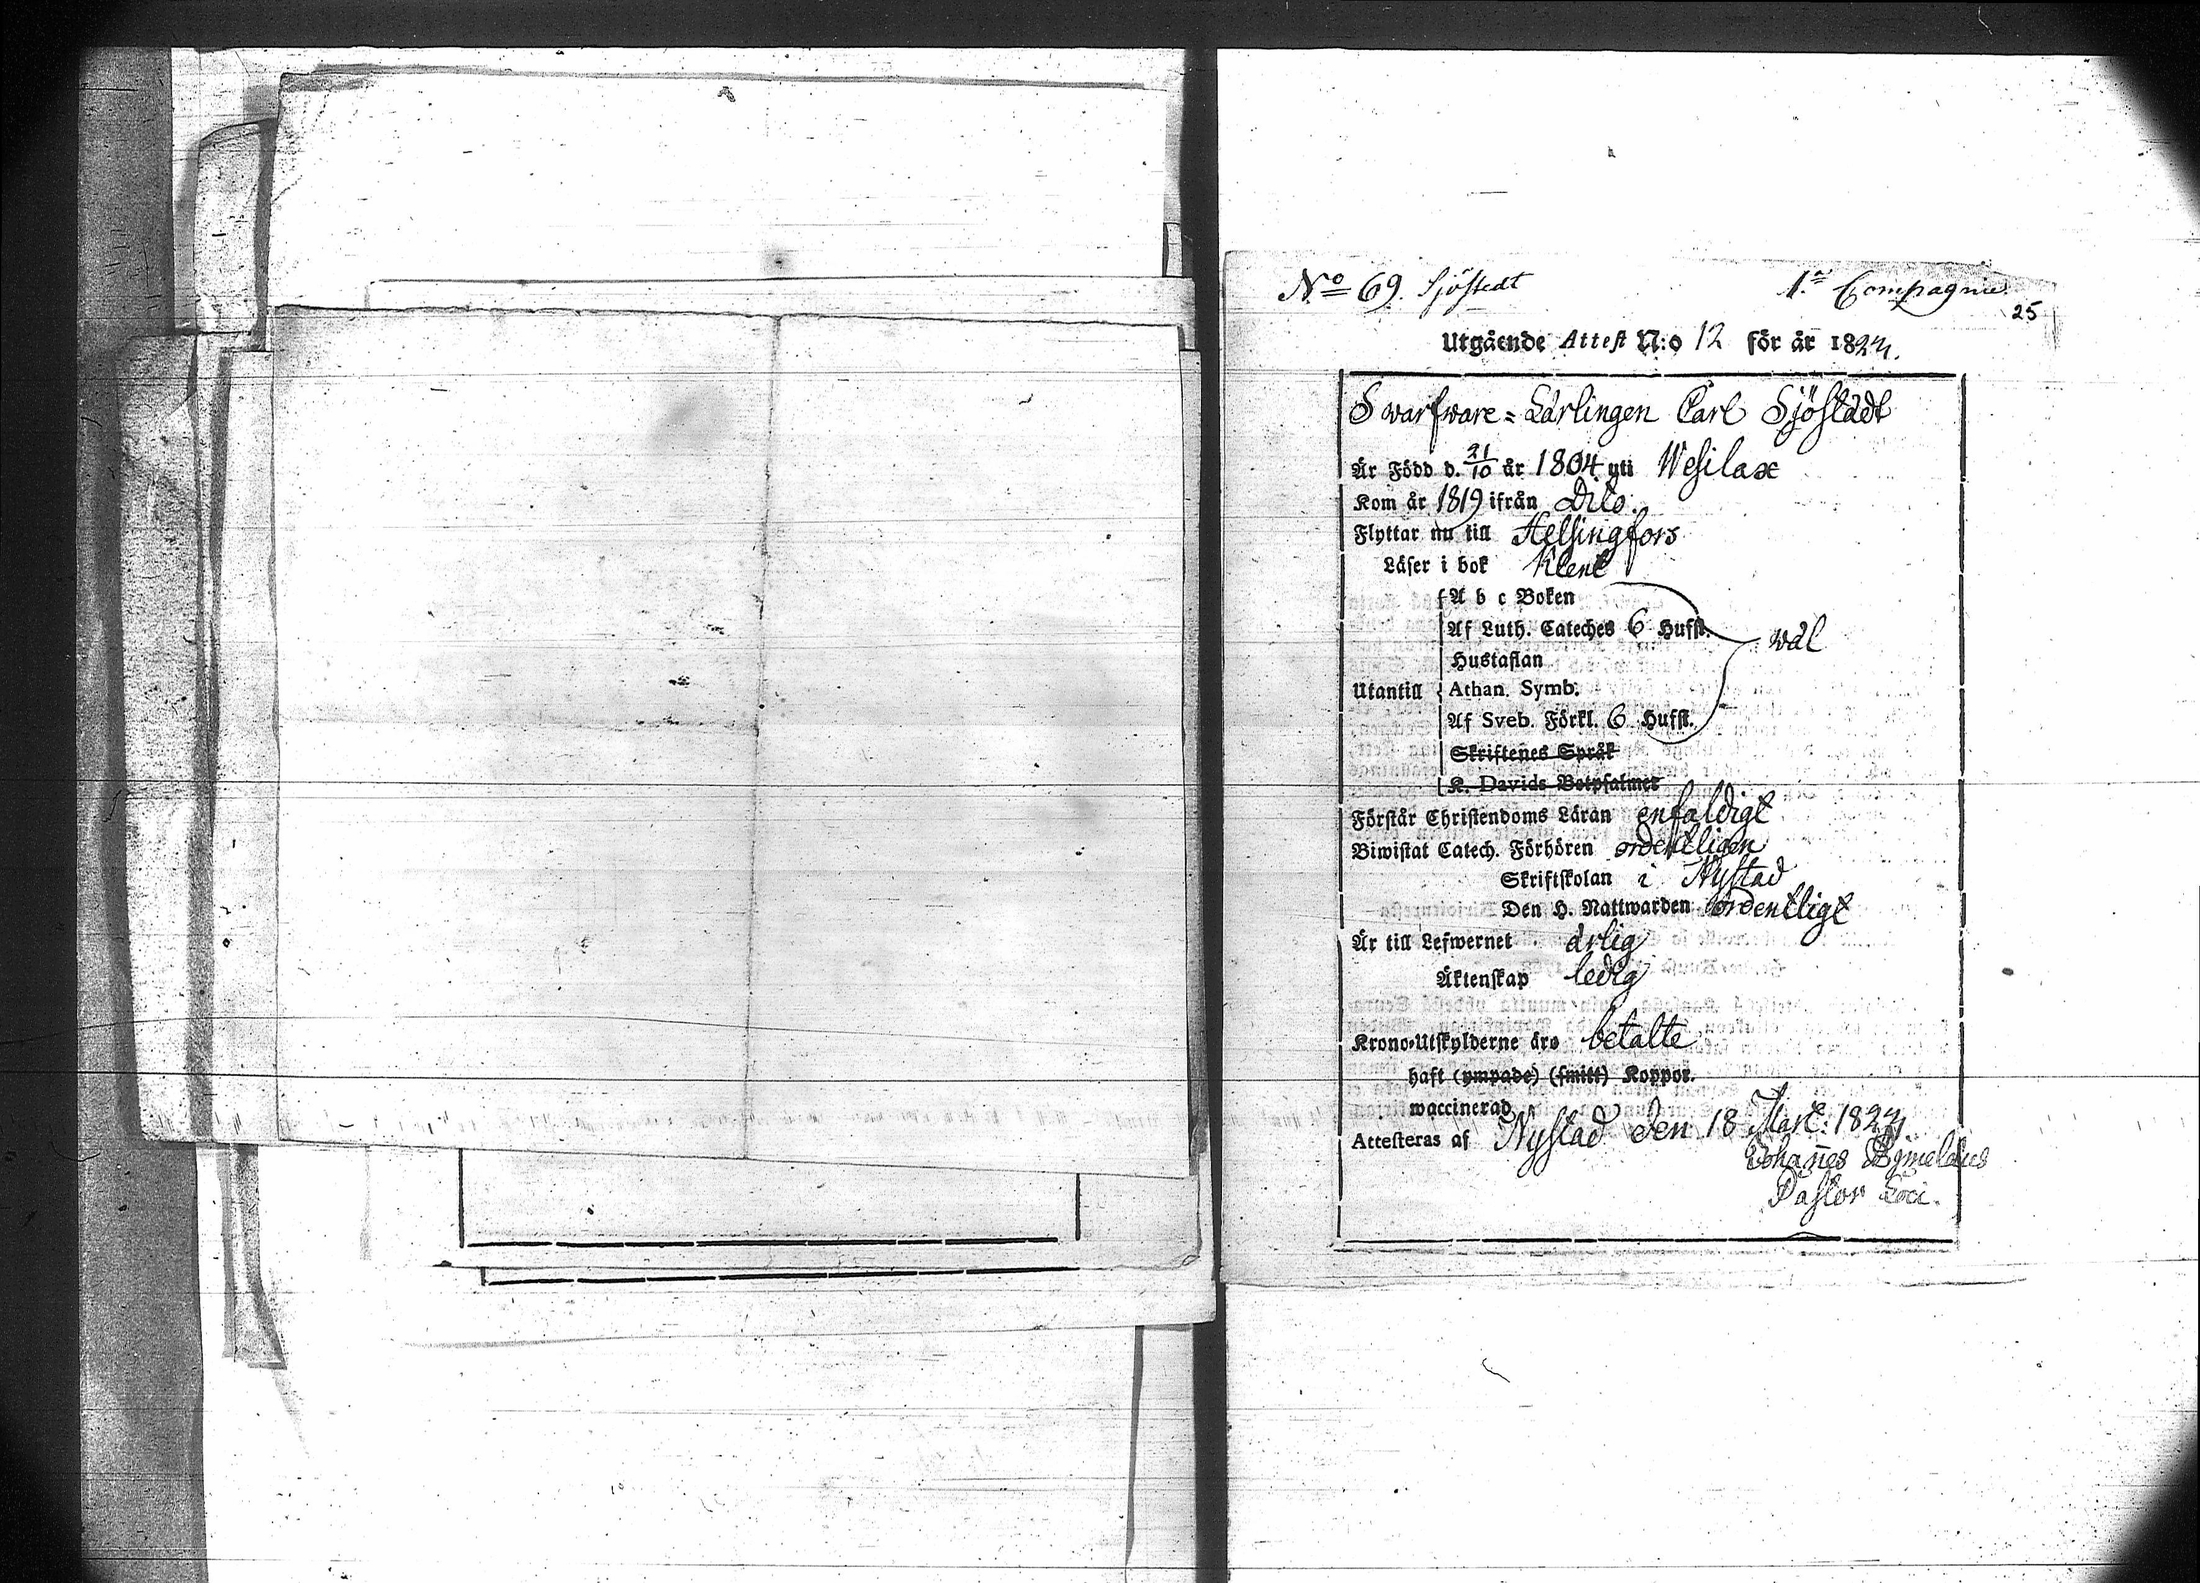 No 69. Sjöstedt
1:a Compagnie.
25
Utgående Attest N:o 12 för år 1824.
Swarfware = Lärlingen Carl Sjöstädt
Är Född d. 21/10 år 1804 uti Wesilax
Kom år 1819 ifrån Dito.
Flyttar nu till Helsingfors
Läser i bok klent
A b c Boken
Af Luth. Cateches 6 Hufst.
wäl
Hustaflan
Utantill Athan. Symb.
Af Sveb. Förkl. 6 Hufst.
Skriftenes Språk
K. Davids Botpsalmer
Förstår Christendoms Läran enfaldigt
Biwistat Catech. Förhören ordentligen
Skriftskolan i Nystad
Den H. Nattwarden ordentligt
Är till Lefwernet ärlig
Äktenskap ledig
Krono-Utskylderne äro betalte
haft (ympade) (smitt) Koppor.
waccinerad
Attesteras af Nystad den 18 Mart: 1824
Johañes
Pastor Loci.